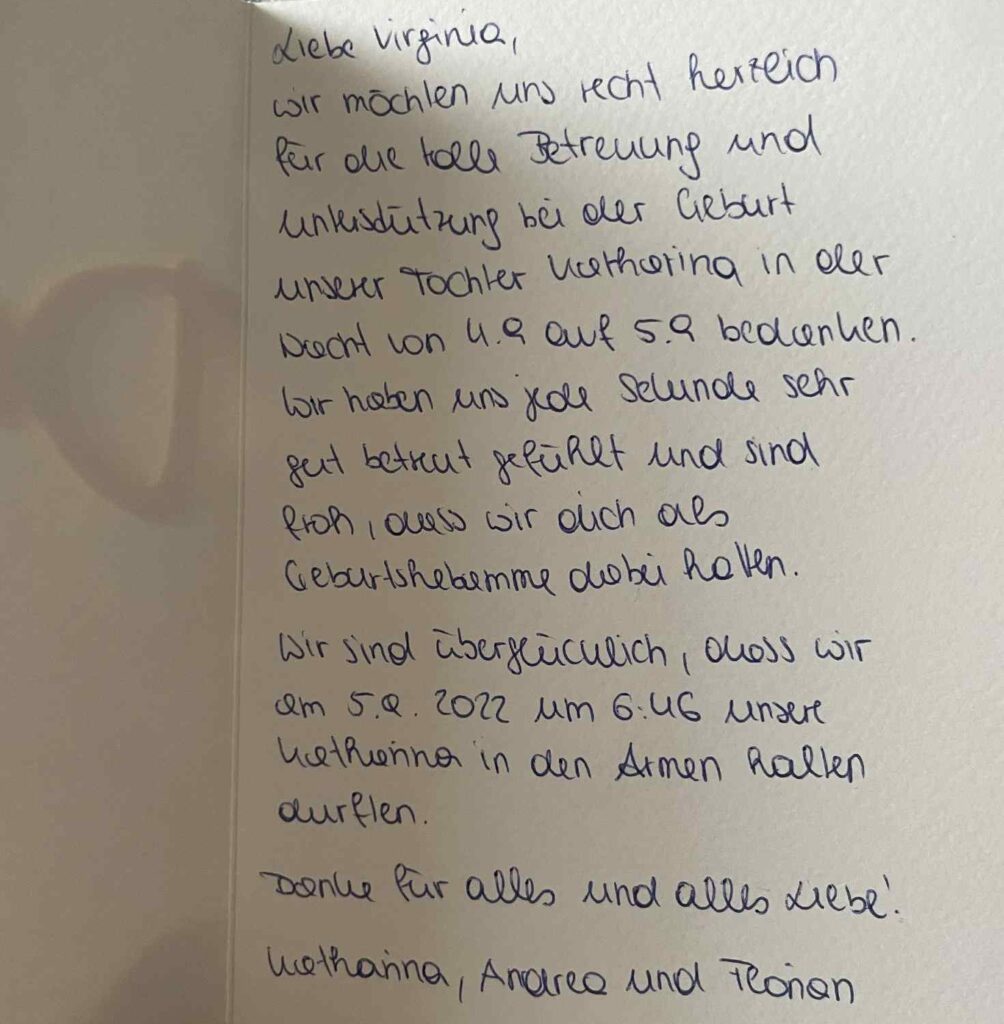 Liebe Virginia,
wir möchten uns recht herzlich
für die tolle Betreuung und
Unterstützung bei der Geburt
unserer Tochter Katharina in der
Nacht von 4.9 auf 5.9 bedanken.
Wir haben uns jede Sekunde sehr
gut betreut gefühlt und sind
froh, dass wir dich als
Geburtshebamme dabei hatten.
Wir sind überglücklich, dass wir
am 5.9.2022 um 6:46 unsere
Katharina in den Armen halten
durften.
Danke für alles und alles Liebe!
Katharina, Andrea und Florian